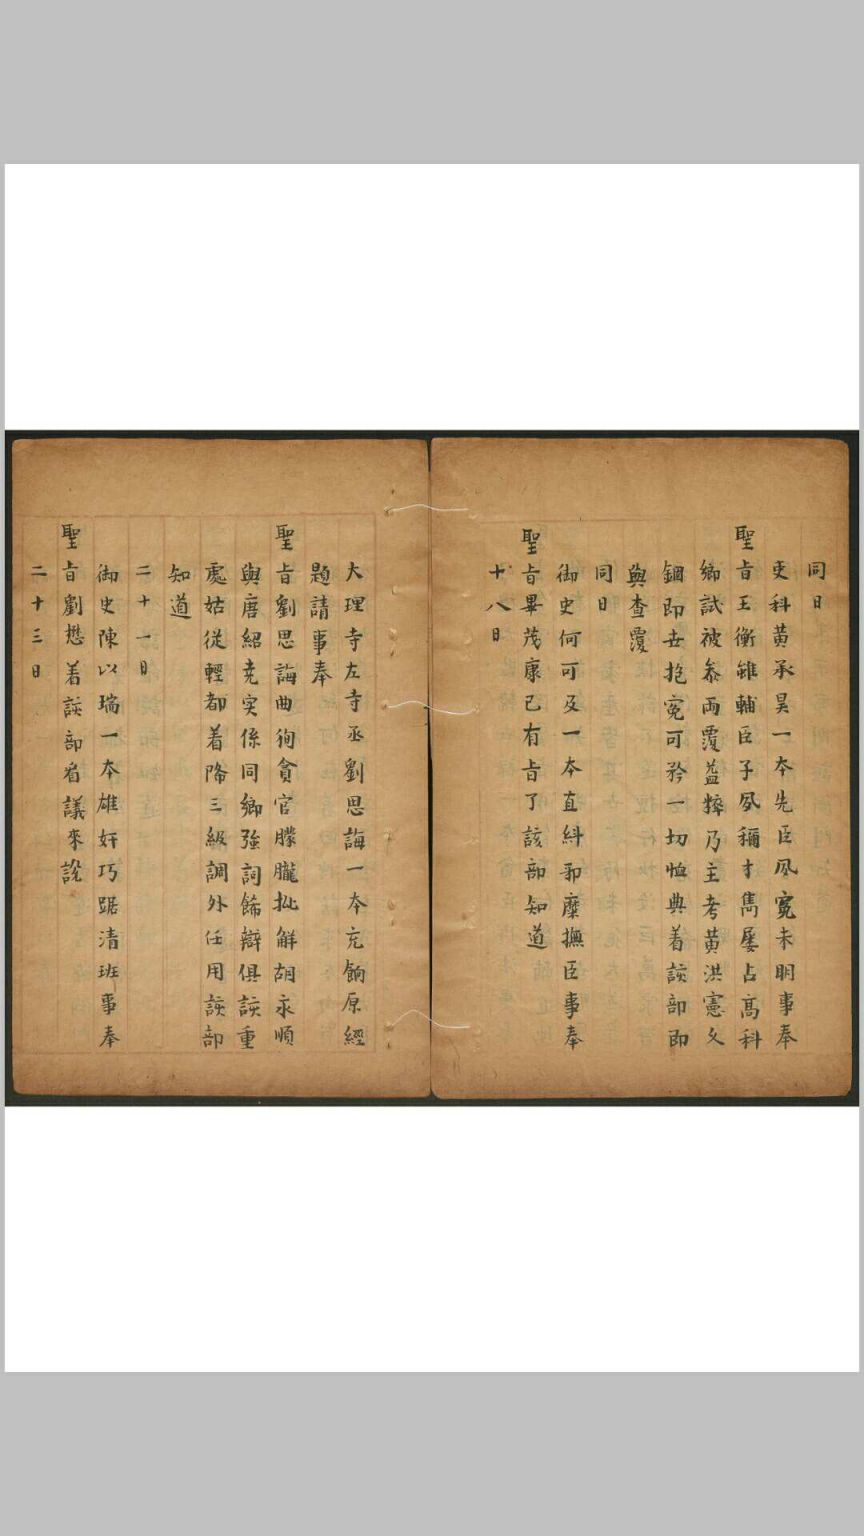 同日
吏科黄承昊一本先臣夙寃未明事奉
聖旨王衡雖輔臣子夙稱才雋屢占高科
鄉試被叅两覆益粹乃主考黄洪憲久
錮即世抱寃可矜一切恤典着該部即
與查覆
同日
御史何可及一本直糾耶糜撫臣事奉
聖旨畢茂康已有旨了該部知道
十八日
大理寺左寺丞劉思誨一本充餉原經
題請事奉
聖旨劉思誨曲徇貪官朦朧批解胡永順
與唐紹尭实係同鄉强詞餙辯俱該重
處姑従輕都着降三級調外任用該部
知道
二十一日
御史陳以瑞一本雄奸巧踞清班事奉
聖旨劉懋着該部看議來說
二十三日